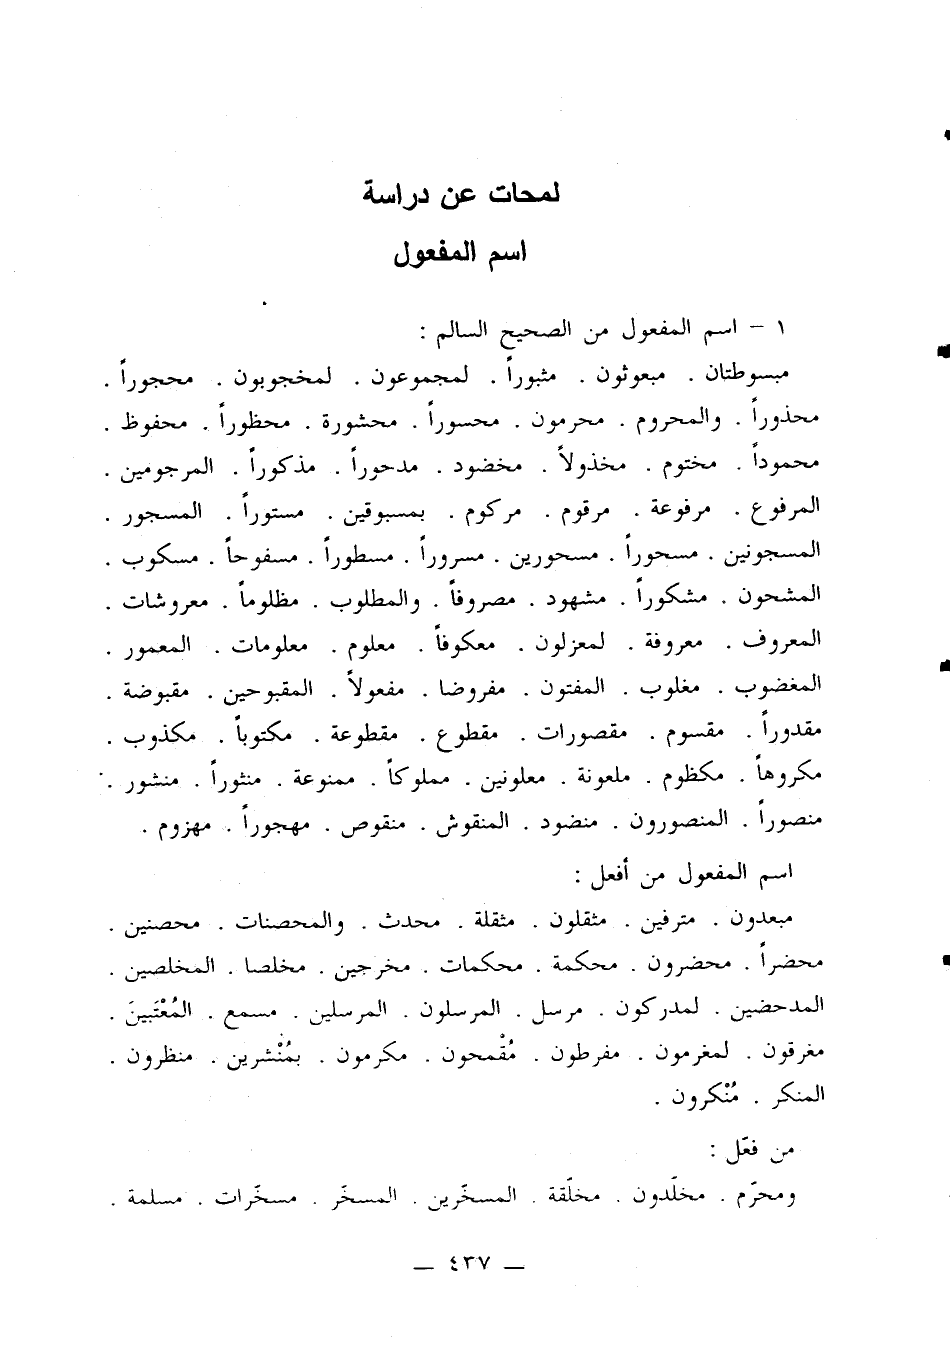 لمحات عن دراسة
اسم المفعول
١ – اسم المفعول من الصحيح السالم :
مبسوطتان . مبعوثون . مثبوراً . لمجموعون . لمخجوبون . محجوراً .
محذوراً . والمحروم . محرمون . محسوراً . محشورة . محظوراً . محفوظ .
محموداً . مختوم . مخذولاً . مخضود . مدحوراً . مذكوراً . المرجومين .
المرفوع . مرفوعة . مرقوم . مركوم . بمسبوقين . مستوراً . المسجور .
المسجونين . مسحوراً . مسحورين . مسروراً . مسطوراً . مسفوحاً . مسكوب .
المشحون . مشكوراً . مشهود . مصروفاً . والمطلوب . مظلوماً . معروشات .
المعروف . معروفة . لمعزلون . معكوفاً . معلوم . معلومات . المعمور .
المغضوب . مغلوب . المفتون . مفروضا . مفعولاً . المقبوحين . مقبوضة .
مقدوراً . مقسوم . مقصورات . مقطوع . مقطوعة . مكتوباً . مكذوب .
مكروهاً . مكظوم . ملعونة . معلونين . مملوكاً . ممنوعة . منثوراً . منشور .
منصوراً . المنصورون . منضود . المنقوش . منقوص . مهجوراً . مهزوم .
اسم المفعول من أفعل :
مبعدون . مترفين . مثقلون . مثقلة . محدث . والمحصنات . محصنين .
محضراً . محضرون . محكمة . محكمات . مخرجين . مخلصا . المخلصين .
المدحضين . لمدركون . مرسل . المرسلون . المرسلين . مسمع . المُعْتَبينَ .
مغرقون . لمغرمون . مفرطون . مُقْمحون . مكرمون . بمُنْشرين . منظرون .
المنكر . مُنْكرون .
من فعّل :
ومحرّم . مخلّدون . مخلّقة . المسحّرين . المسخّر . مسخّرات . مسلمة .
— ٤٣٧ —